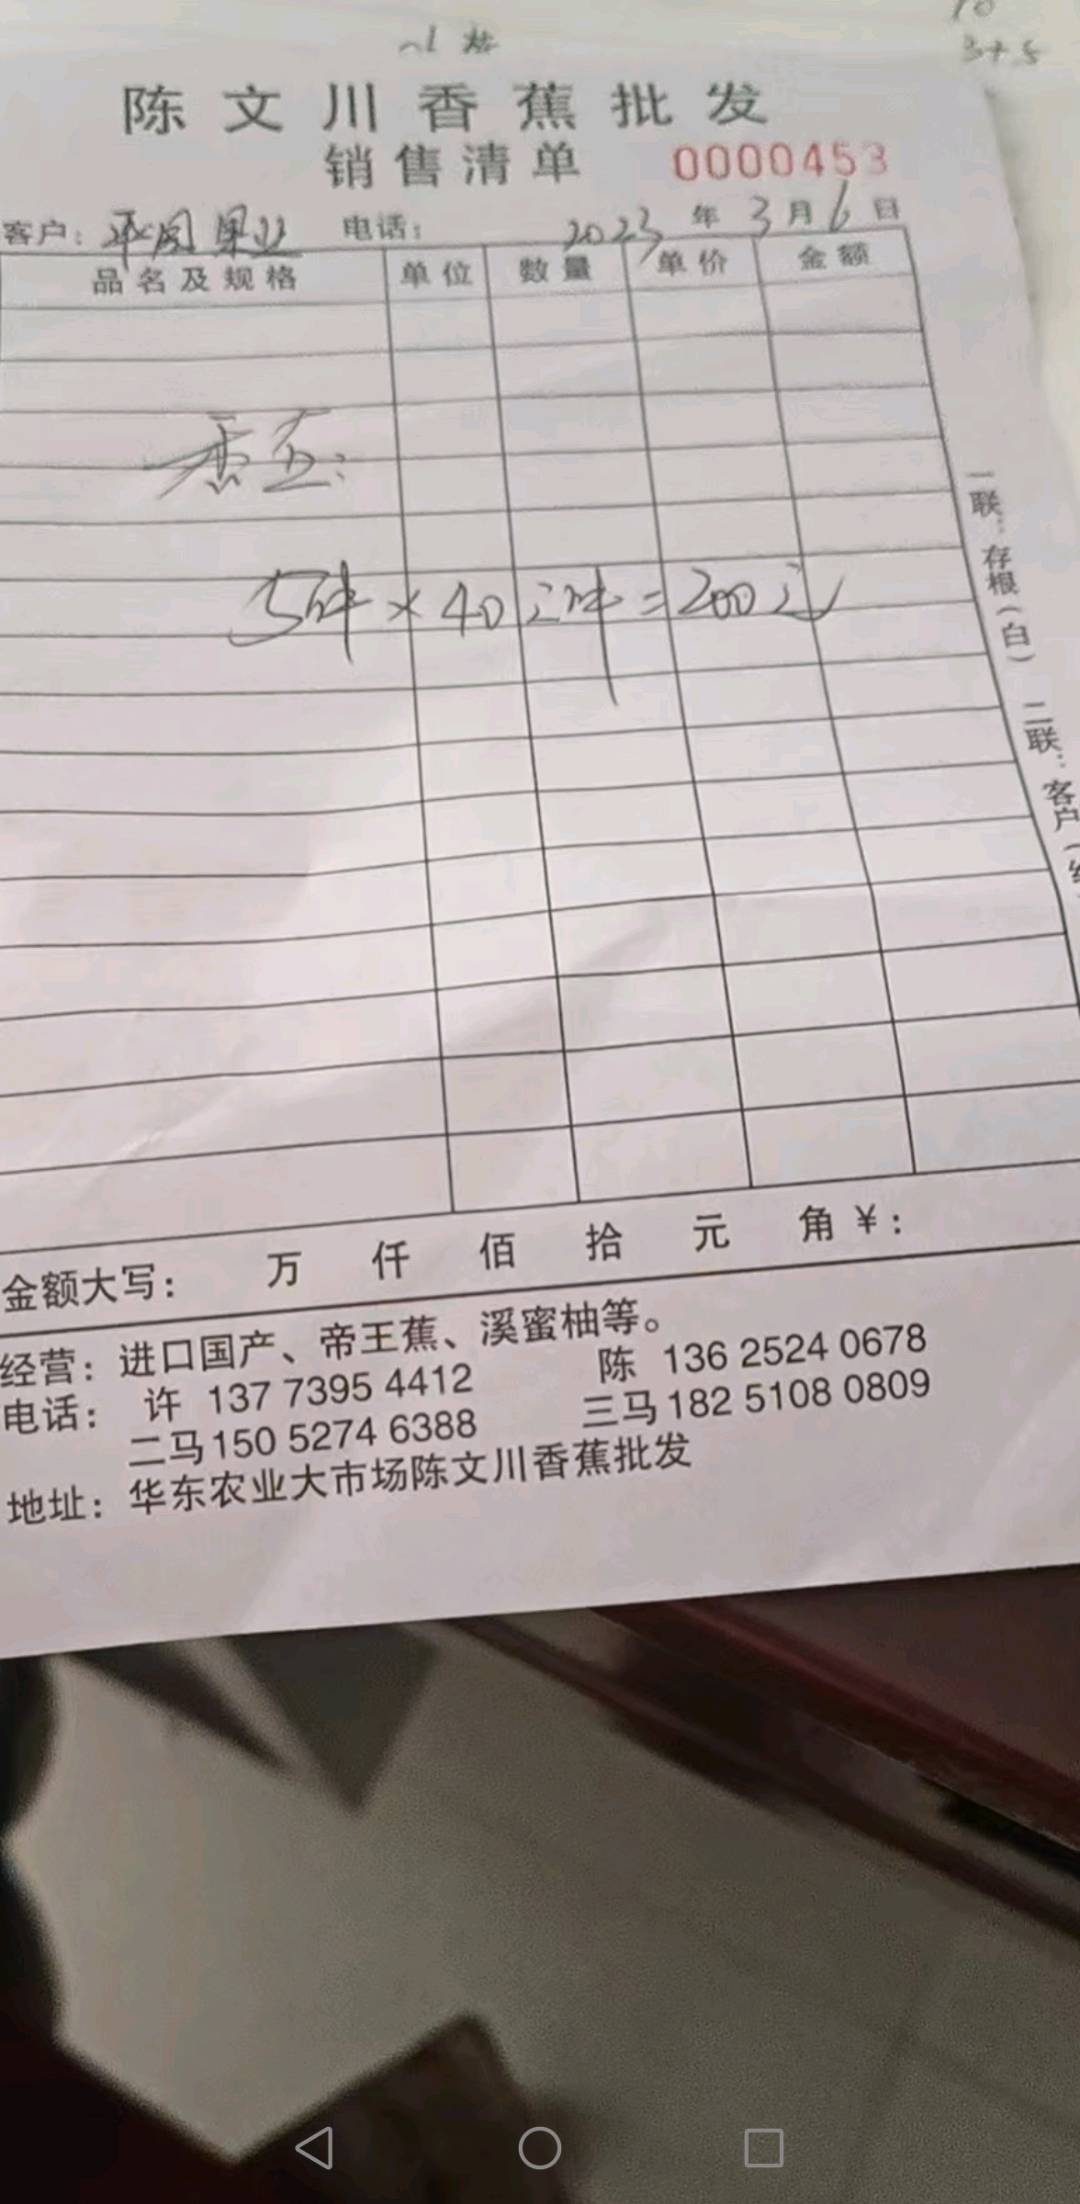 陈文川香蕉批发
销售清单 0000453
客户: 果业 电话: 2023年3月6日
品名及规格 单位 数量 单价 金额
5件×40元/件=200元
一联:存根(白) 二联:客户(
金额大写: 万 仟 佰 拾 元 角 ¥:
经营:进口国产、帝王蕉、溪蜜柚等。
电话: 许 137 7395 4412 陈 136 2524 0678
二马 150 5274 6388 三马 182 5108 0809
地址:华东农业大市场陈文川香蕉批发